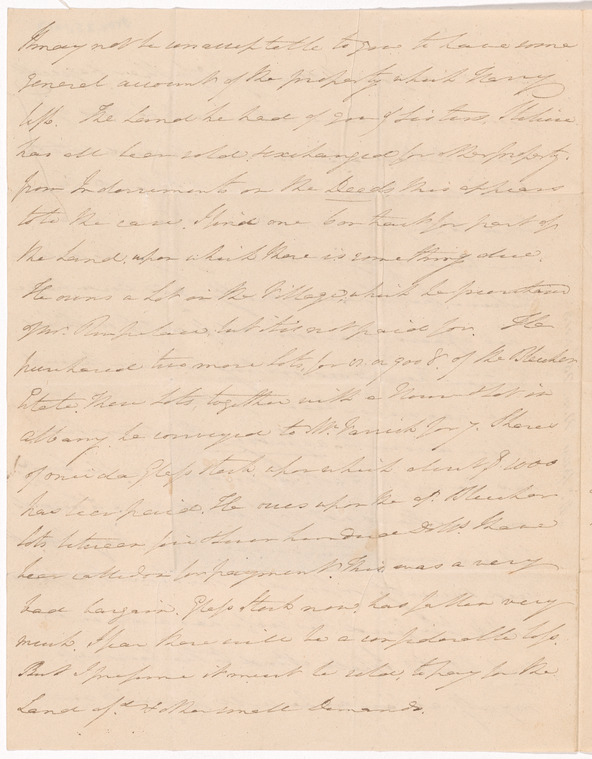 It may not be unacceptable to you to have some
general account of the property which Henry
left. The Land he had of you & Sisters, I believe
has all been sold & exchanged for other property.
from Indorsements on the Deeds this appears
to be the case. I find one Contract for part of
the Land, upon which there is something due.
He owns a Lot in the Village, which he purchased
of Mr. but it is not paid for. He
purchased two more lots, for of the Bleecker
Estate. These Lots, together with a House & Lot in
Albany he conveyed to Mr. Varick for 7. Shares
of oneida Glass Stock upon which about $ 1000
has been paid. He owes upon the sd. Bleecker
lots between five & seven hundred Dolls. I have
been called on for payment. This was a very
bad bargain. Glass Stock now, has fallen very
much. I fear there will be a considerable loss.
But I presume it must be sold, to pay for the
Land afd. & other small Demands.